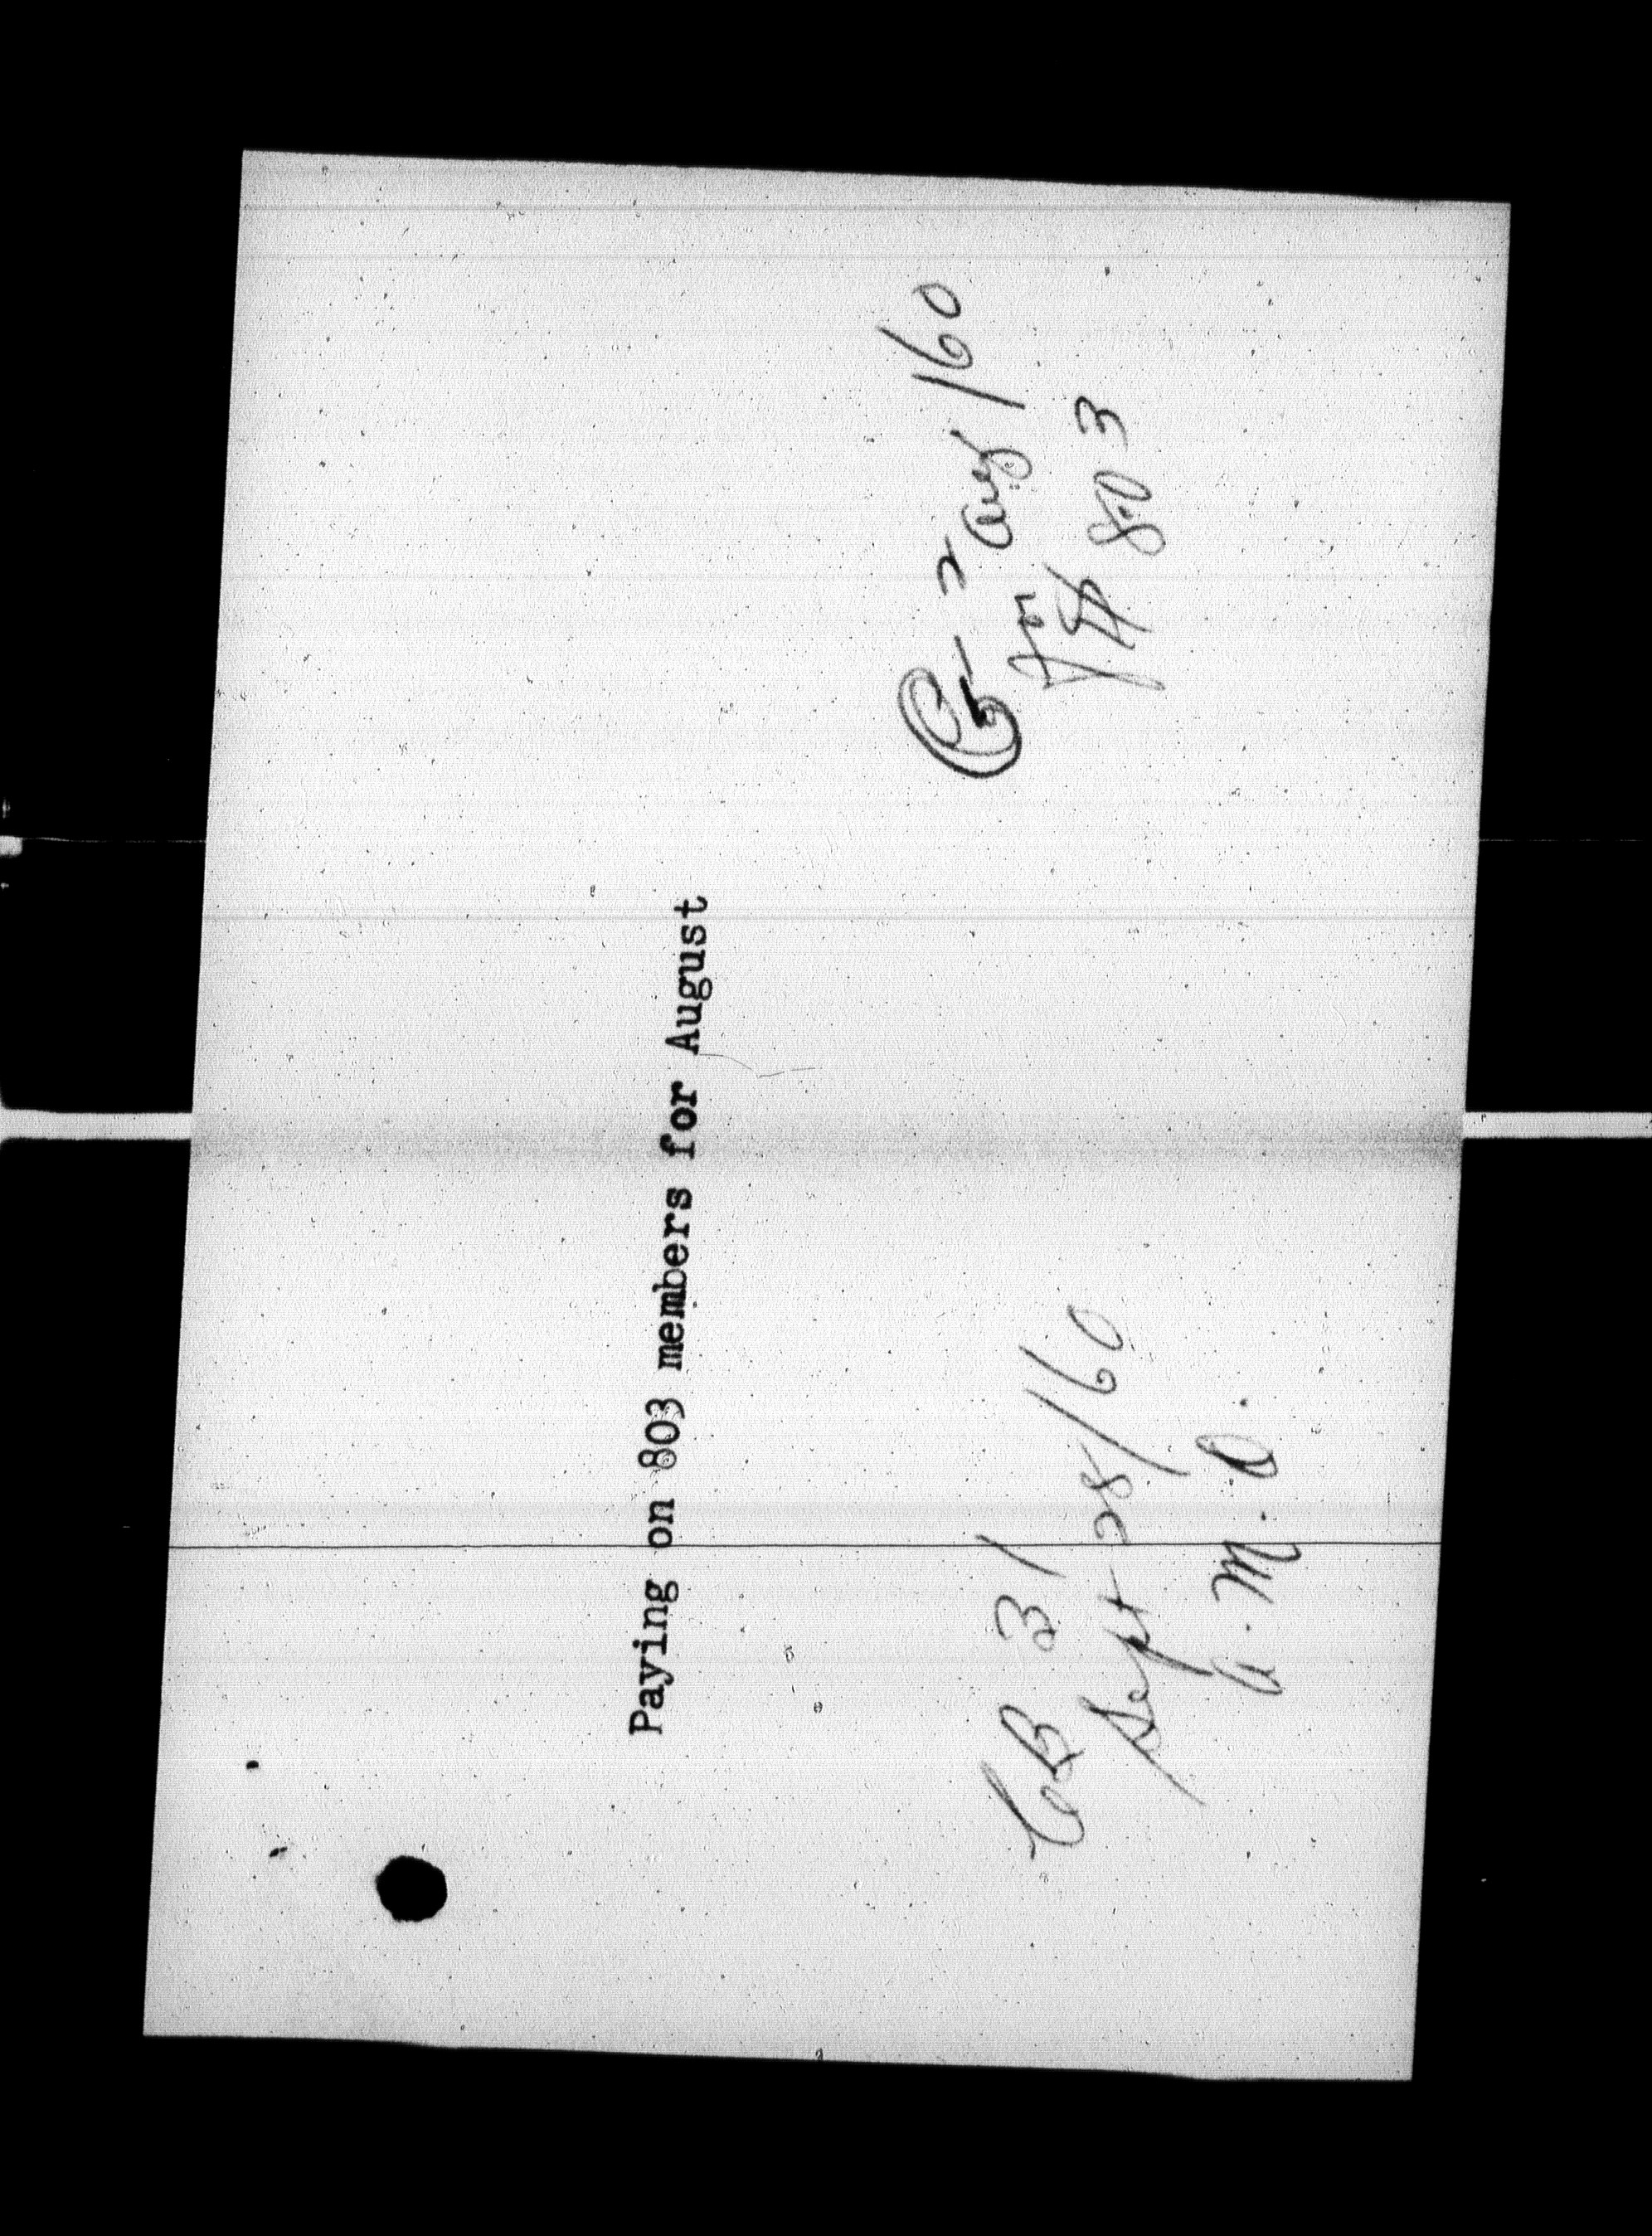 Paying on 803 members for August
Aug/60
for
803
CB 31
Sept 28/60
a.m.O.